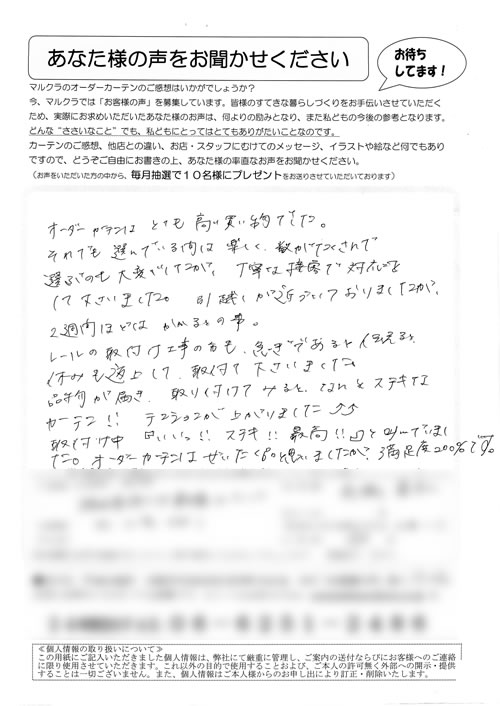 あなた様の声をお聞かせください
お待ち
してます！
マルクラのオーダーカーテンのご感想はいかがでしょうか？
今、マルクラでは「お客様の声」を募集しています。皆様のすてきな暮らしづくりをお手伝いさせていただく
ため、実際にお求めいただいたあなた様のお声は、何よりの励みとなり、また私どもの今後の参考となります。
どんな“ささいなこと”でも、私どもにとってはとてもありがたいことなのです。
カーテンのご感想、他店との違い、お店・スタッフにむけてのメッセージ、イラストや絵など何でもあり
ですので、どうぞご自由にお書きの上、あなた様の率直なお声をお聞かせください。
（お声をいただいた方の中から、毎月抽選で１０名様にプレゼントをお送りさせていただいております）
オーダーカーテンは とても 高い買い物でした。
それでも 選んでいる間は 楽しく、数がたくさんで
選ぶのも 大変でしたが、丁寧な接客で 対応を
して下さいました。 引越しが近づいておりましたが、
2週間ほどは かかるとの事。
レールの取付け工事の方も、急ぎであると伝えると、
休みも返上して、取付て下さいました。
品物が届き、取り付けてみると、なんとステキな
カーテン!! テンションが上がりました↑↑
取付け中 ステキ!! 最高!! と叫んでいまし
た。オーダーカテンはぜいたく品と思いましたが、満足度200%です。
≪個人情報の取り扱いについて≫
この用紙にご記入いただきました個人情報は、弊社にて厳重に管理し、ご案内の送付ならびにお客様へのご連絡
に限り使用させていただきます。これ以外の目的で使用することおよび、ご本人の許可無く外部への開示・提供
することは一切ございません。また、個人情報はご本人様からのお申し出により訂正・削除いたします。